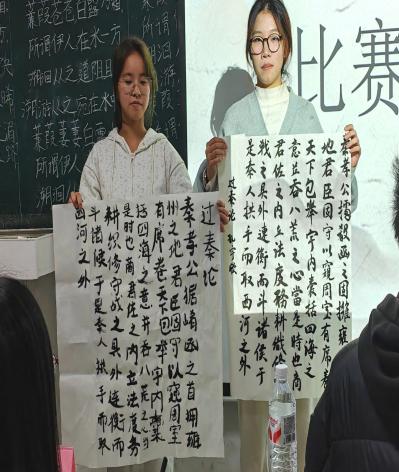 蒹葭苍苍白露为
所谓伊人在水一方
溯洄从之道阻且
溯游从之宛在水
蒹葭萋萋白露
所谓伊人
溯洄
比赛
过秦论
秦孝公据崤函之首拥雍
州之地君臣固守以窥周室
有席卷天下回举宇内囊
括四海之意并吞八荒之心当
是时也商君佐之内立法度务
耕织修守战之具外连衡而
斗诸侯于是秦人拱手而取
西河之外
秦孝公据殽函之固拥雍
地君臣固守以窥周室有席卷
天下包举宇内囊括四海之
意并吞八荒之心当是时也商
君佐之内立法度务耕织修
战之具外连衡而斗诸侯于
是秦人拱手而取西河之外
过秦论